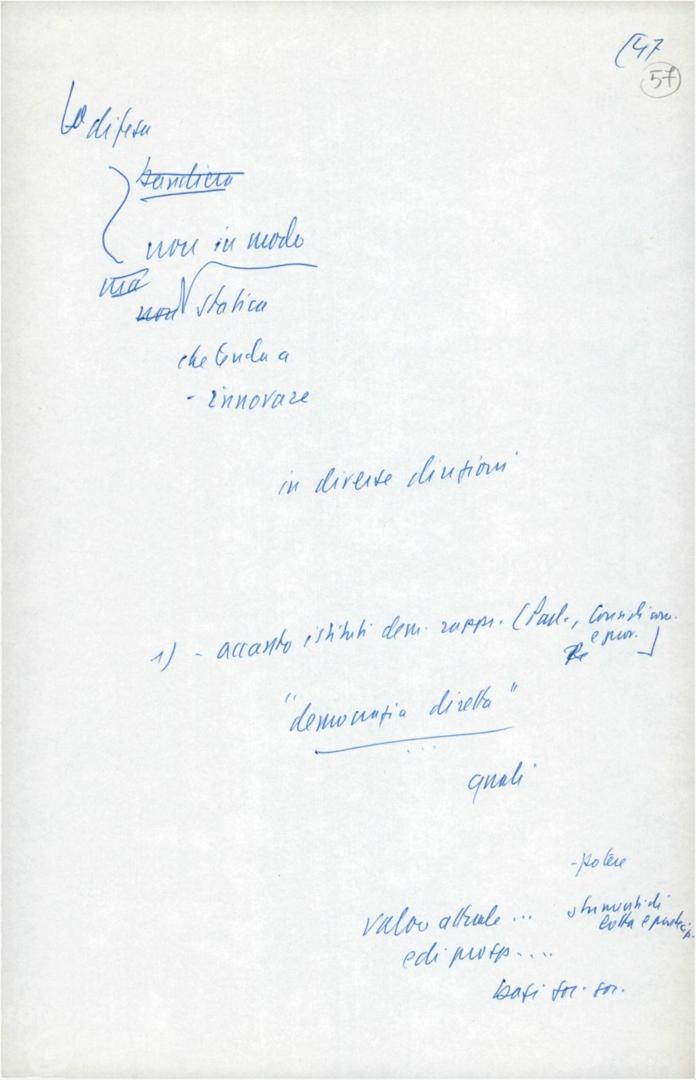 (47
57
La difesa
bandiera
non in modo
ma
non statica
che tenda a
- innovare
in diverse direzioni
1) - accanto istituti dem. rappr. (Parl., Consigli com.
e prov.
"democrazia diretta"
...
quali
- potere
valore attuale ... strumenti di
lotta e partecip.
e di prosp....
basi soc. soc.